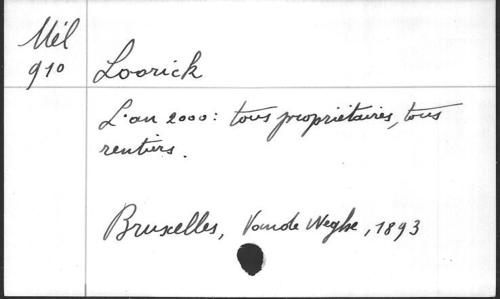 Mél
910
Loorick
L'an 2000: tous propriétaires, tous
rentiers.
Bruxelles, Vande Weghe, 1893